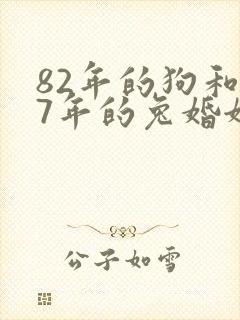 82年的狗和
7年的兔婚姻
公子如雪